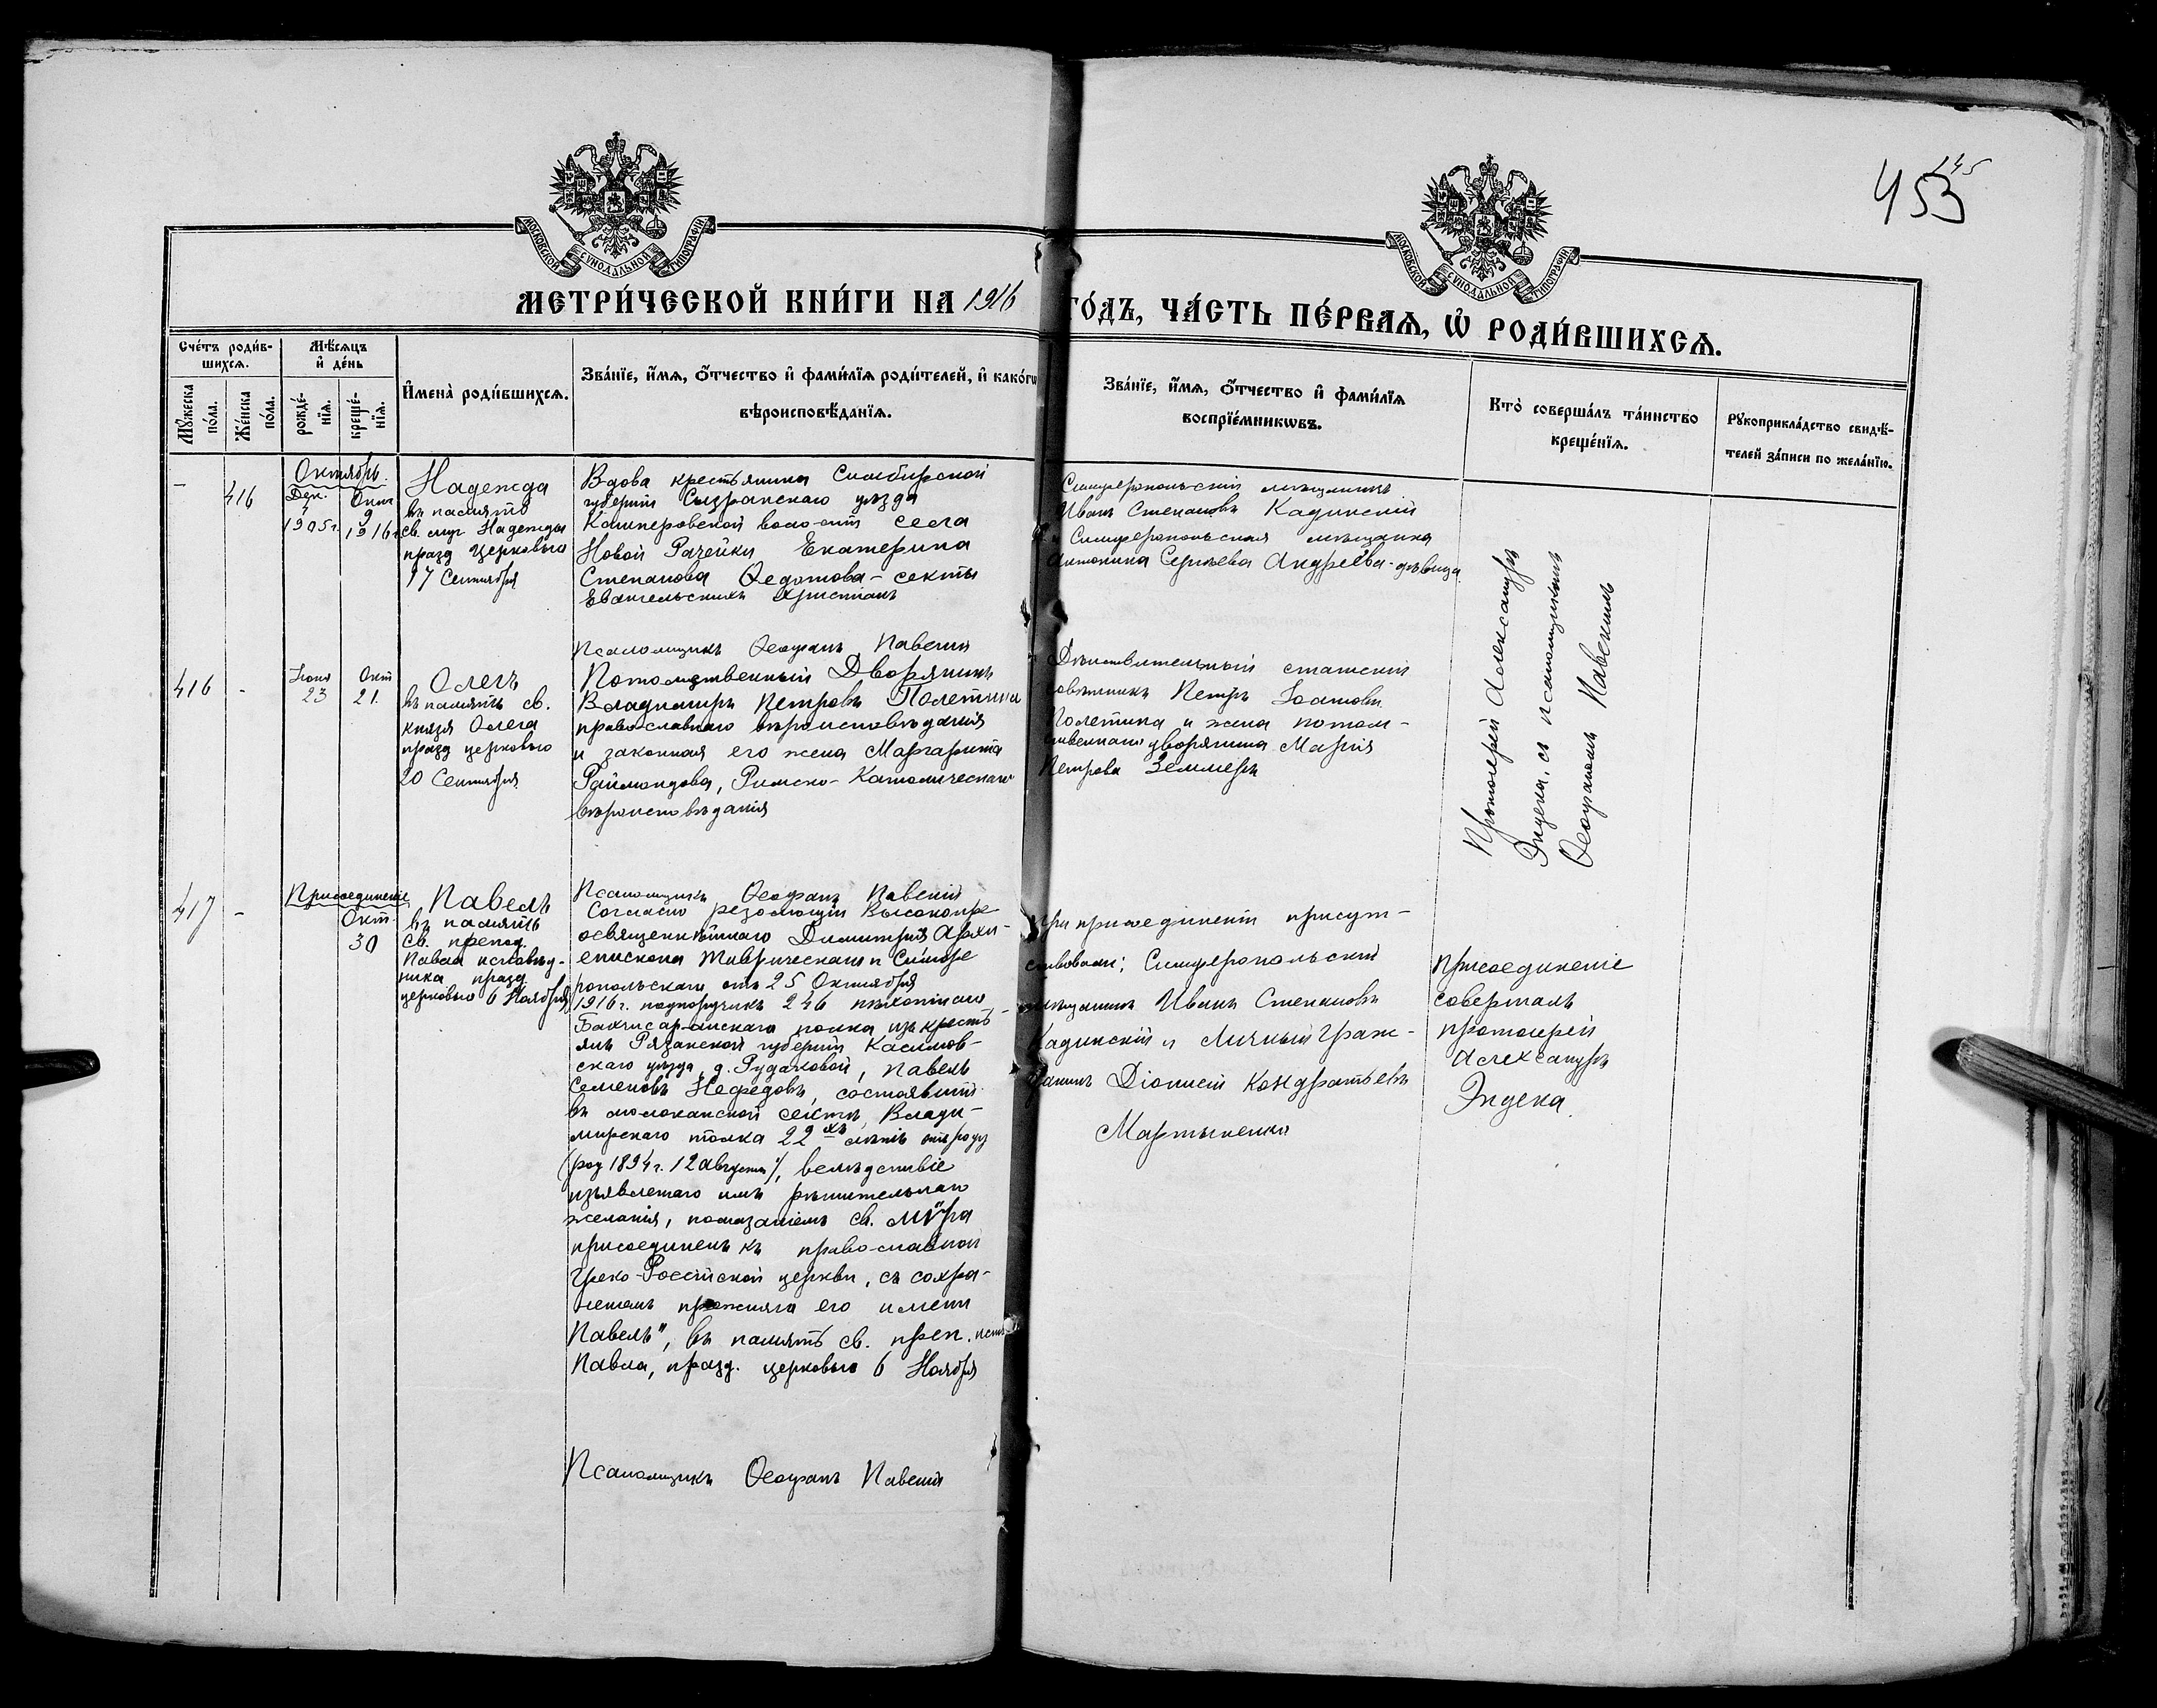 453
145
МОСКОВСКОЙ СѴНОДАЛЬНОЙ ТИПОГРАФІИ
МОСКОВСКОЙ СѴНОДАЛЬНОЙ ТИПОГРАФІИ
МЕТРИ́ЧЕСКОЙ КНИ́ГИ НА 1916 ГО́ДЪ, ЧА́СТЬ ПЕ́РВАѦ, Ѡ҆ РОДИ́ВШИХСѦ.
Сче́тъ роди́в-
шихсѧ.
Мꙋ́жеска по́ла.
Же́нска по́ла.
Мѣ́сѧцъ
и҆ де́нь
рожде́-
нїѧ.
креще́-
нїѧ.
И҆мена̀ роди́вшихсѧ.
Зва́нїе, и҆́мѧ, ѻ҆́тчество и҆ фами́лїѧ роди́телей, и҆ како́гѡ
вѣроисповѣ́данїѧ.
Зва́нїе, и҆́мѧ, ѻ҆́тчество и҆ фами́лїѧ
воспрїе́мникѡвъ.
Кто̀ соверша́лъ та́инство
креще́нїѧ.
Рꙋкоприкла́дство свидѣ́-
телей за́писи по жела́нїю.
–
416
Октябрь.
Дек.
4
1905 г.
Окт
9
1916 г.
Надежда
въ память
св. муч Надежды
празд церковью
17 Сентября
Вдова крестьянина Симбирской
губерніи Сызранскаго уѣзда
волости села
Новой Рачейки Екатерина
Степанова Ѳедотова – секты
Евангельскихъ Христіанъ
Псаломщикъ Ѳеофанъ Павскій
Симферопольскій мѣщанинъ
Иванъ Степановъ Кадинскій
и Симферопольская мѣщанка
Антонина Сергѣева Андреева - дѣвица
416
-
Іюня
23
Окт
21.
Олегъ
въ память св.
князя Олега
празд церковью
20 Сентября
Потомственный Дворянинъ
Владимиръ Петровъ Полетика
православнаго вѣроисповѣданія
и законная его жена Маргарита
Раймондова, Римско-Католическаго
вѣроисповѣданія
Псаломщикъ Ѳеофанъ Павскій
Дѣйствительный статскій
совѣтникъ Петръ
Полетика и жена потом-
ственнаго дворянина Марія
Петрова Земмеръ
Протоіерей Александръ
Эндека, съ псаломщикомъ
Ѳеофаномъ Павскимъ
417
-
Присоединеніе
Окт.
30
Павелъ
въ память
св. препод.
Павла исповѣд-
ника празд
церковью 6 Ноября
Согласно резолюціи Высокопре
освященнѣйшаго Димитрія Архи-
епископа Таврическаго и Симфе
ропольскаго отъ 25 Октября
1916 г. подпоручикъ 246 пѣхотнаго
Бахчисарайскаго полка изъ кресть-
янъ Рязанской губерніи Касимов-
скаго уѣзда, д. Рудаковой, Павелъ
Семеновъ Нефедовъ, состоявшій
въ молоканской сектѣ, Влади-
мирскаго толка 22хъ лѣтъ отъ роду
(род 1894 г. 12 августа), вслѣдствіе
изъявленнаго имъ рѣшительнаго
желанія, помазаніемъ св. Мѵра
присоединенъ къ православной
Греко-Россійской церкви, съ сохра-
неніемъ прежняго его имени
Павелъ", въ память св. преп. исп.
Павла, празд. церковью 6 Ноября
Псаломщикъ Ѳеофанъ Павскій
При присоединеніи присут-
ствовали: Симферопольскій
мѣщанинъ Иванъ Степановъ
Кадинскій и Личный Граж-
данинъ Діонисій Кондратьевъ
Мартыненко
Присоединеніе
совершалъ
протоіерей
Александръ
Эндека.